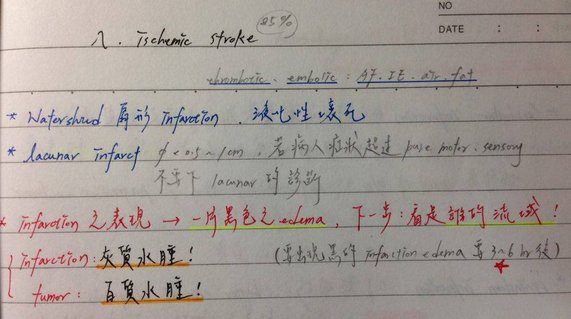 NO
DATE : :
85%
八. Ischemic stroke
thrombotic. embolic : AF. IE. air. fat
* Watershed 扇形 infarction. 液化性壞死
* lacunar infarct φ < 0.5~1cm. 若病人症狀超過 pure motor. sensory
不要下 lacunar 的診斷
* infarction 之表現 → 一片黑色之 edema, 下一步:看是誰的流域!
infarction: 灰質水腫! (要出現黑的 infarction edema 要 3~6 hr 後)
tumor: 白質水腫!